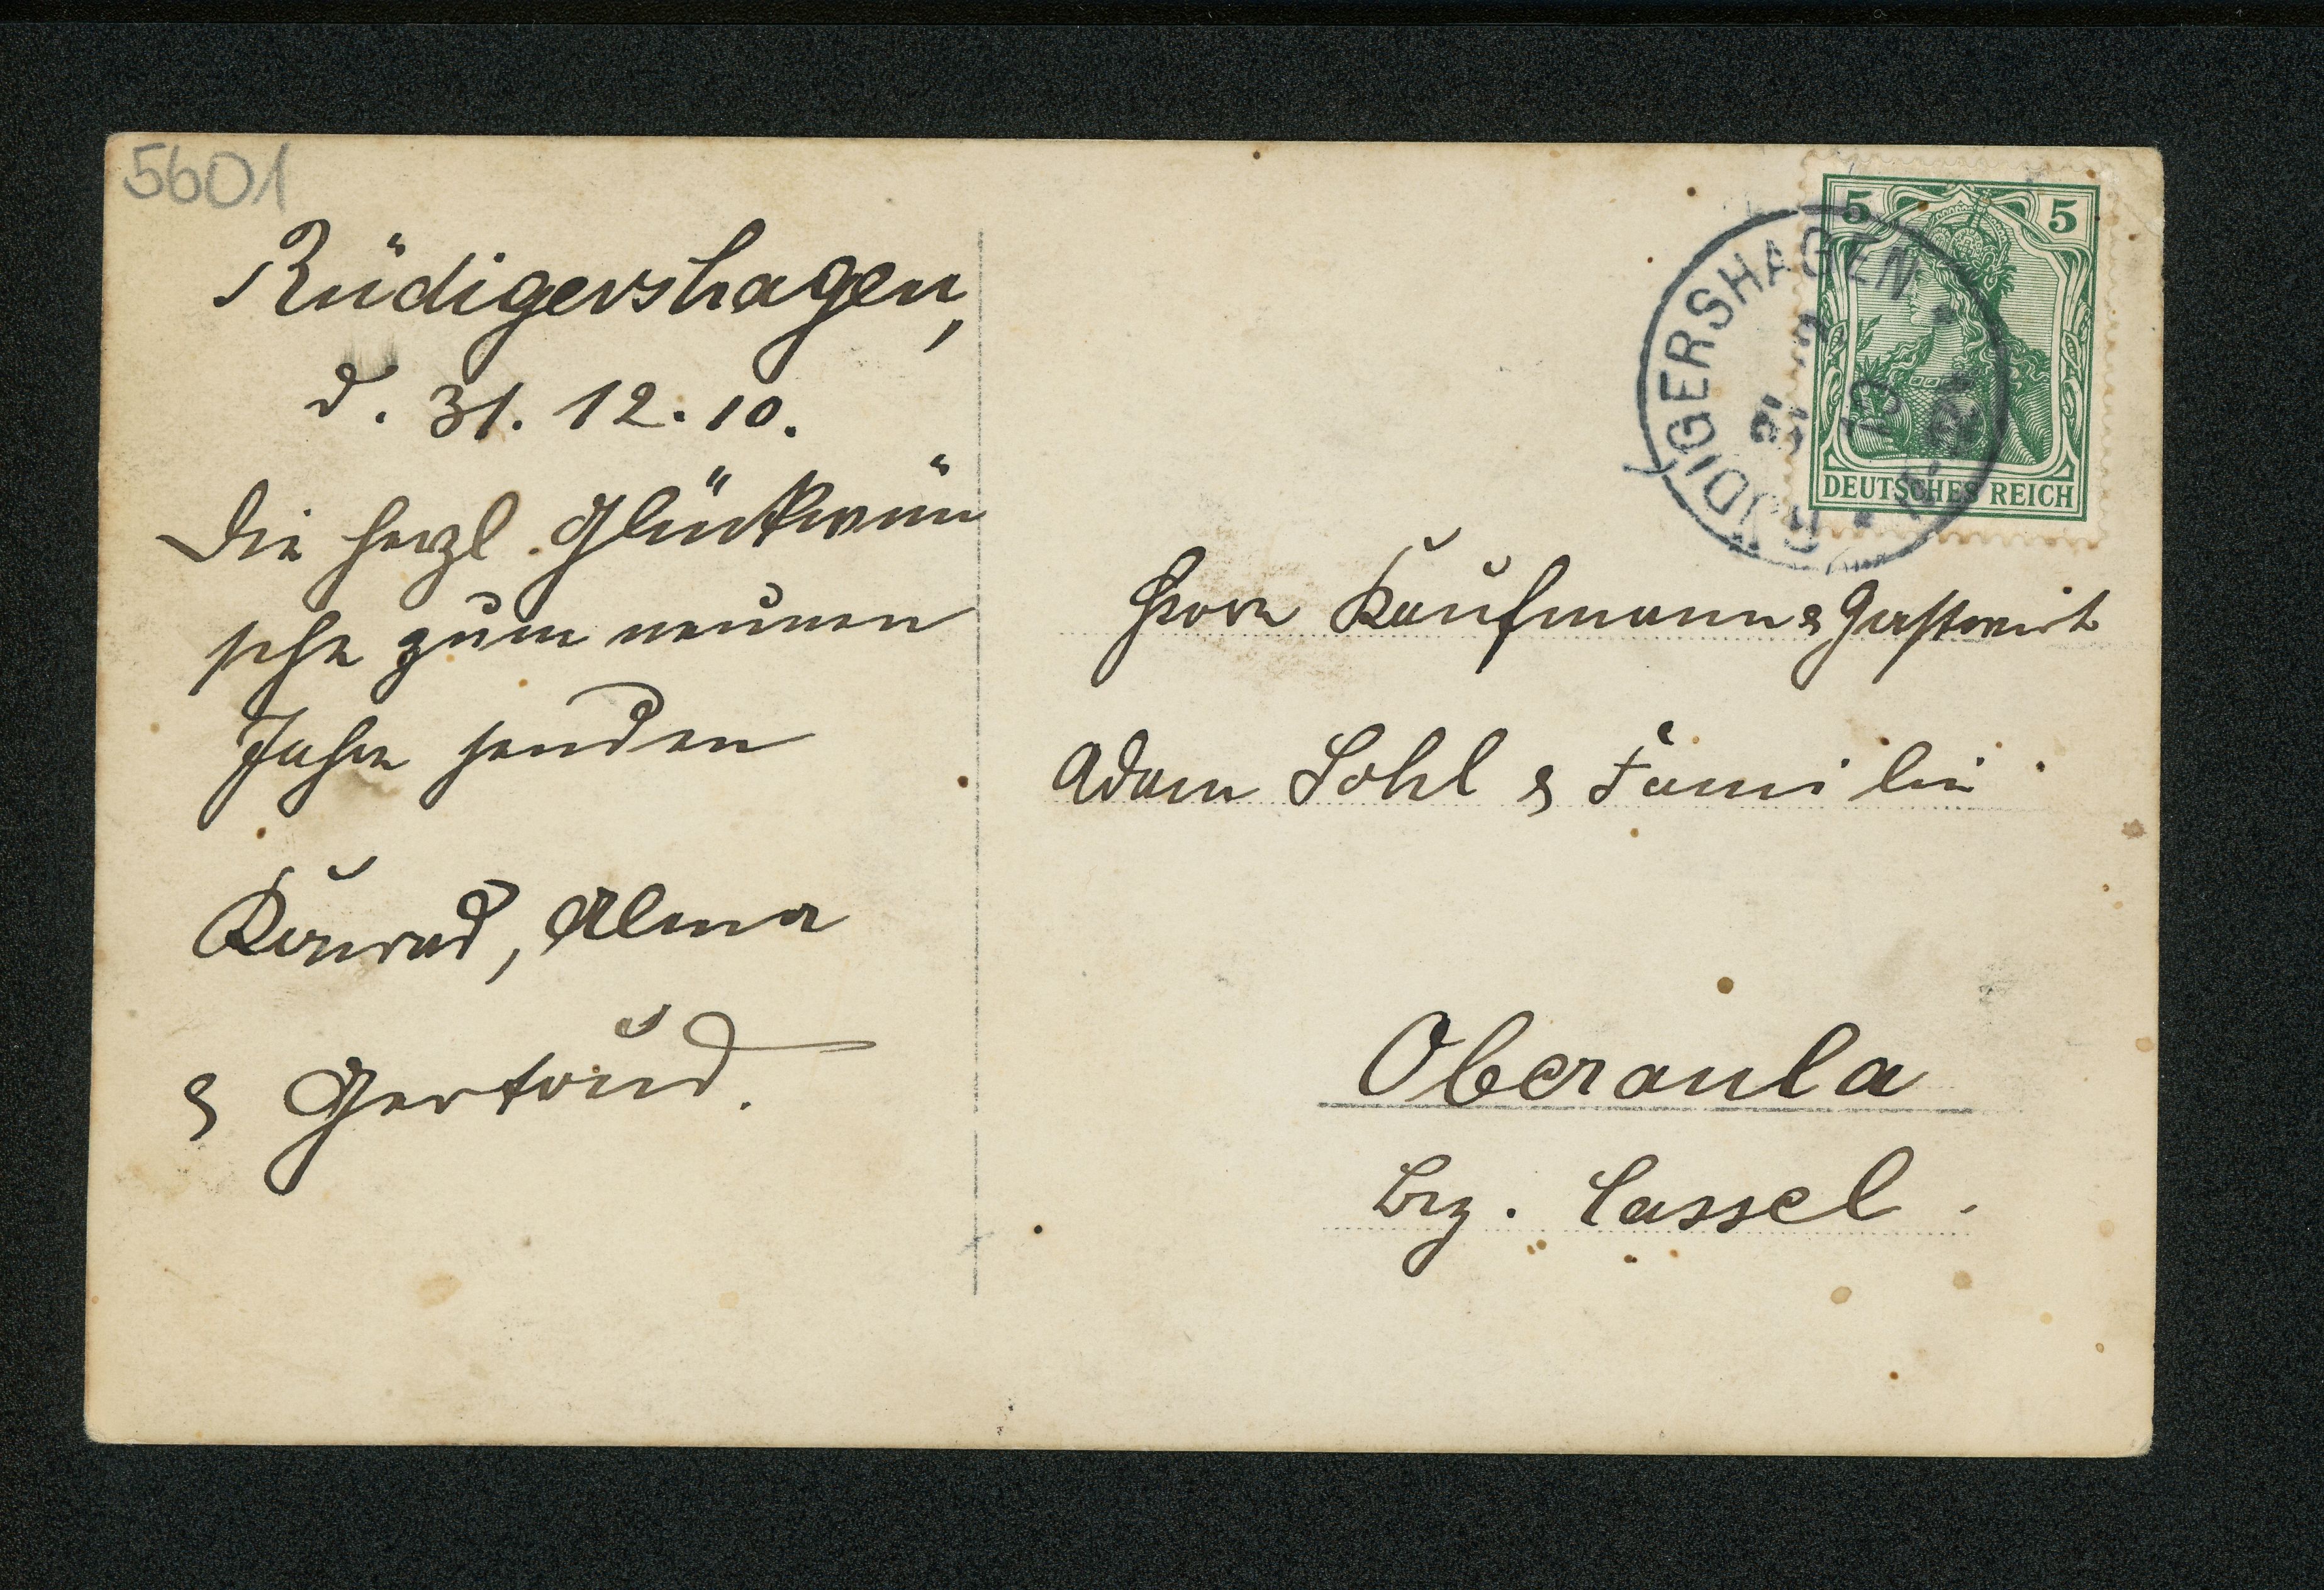 5601
Rüdigershagen,
d. 31. 12. 10.
Die herzl. Glückwün
sche zum neuen
Jahre senden
Konrad, Alma
& Gertrud.
RÜDIGERSHAGEN
5 5
DEUTSCHES REICH
Herrn Kaufmann & Gastwirt
Adam Sohl & Familie
Oberaula
Bez. Cassel.